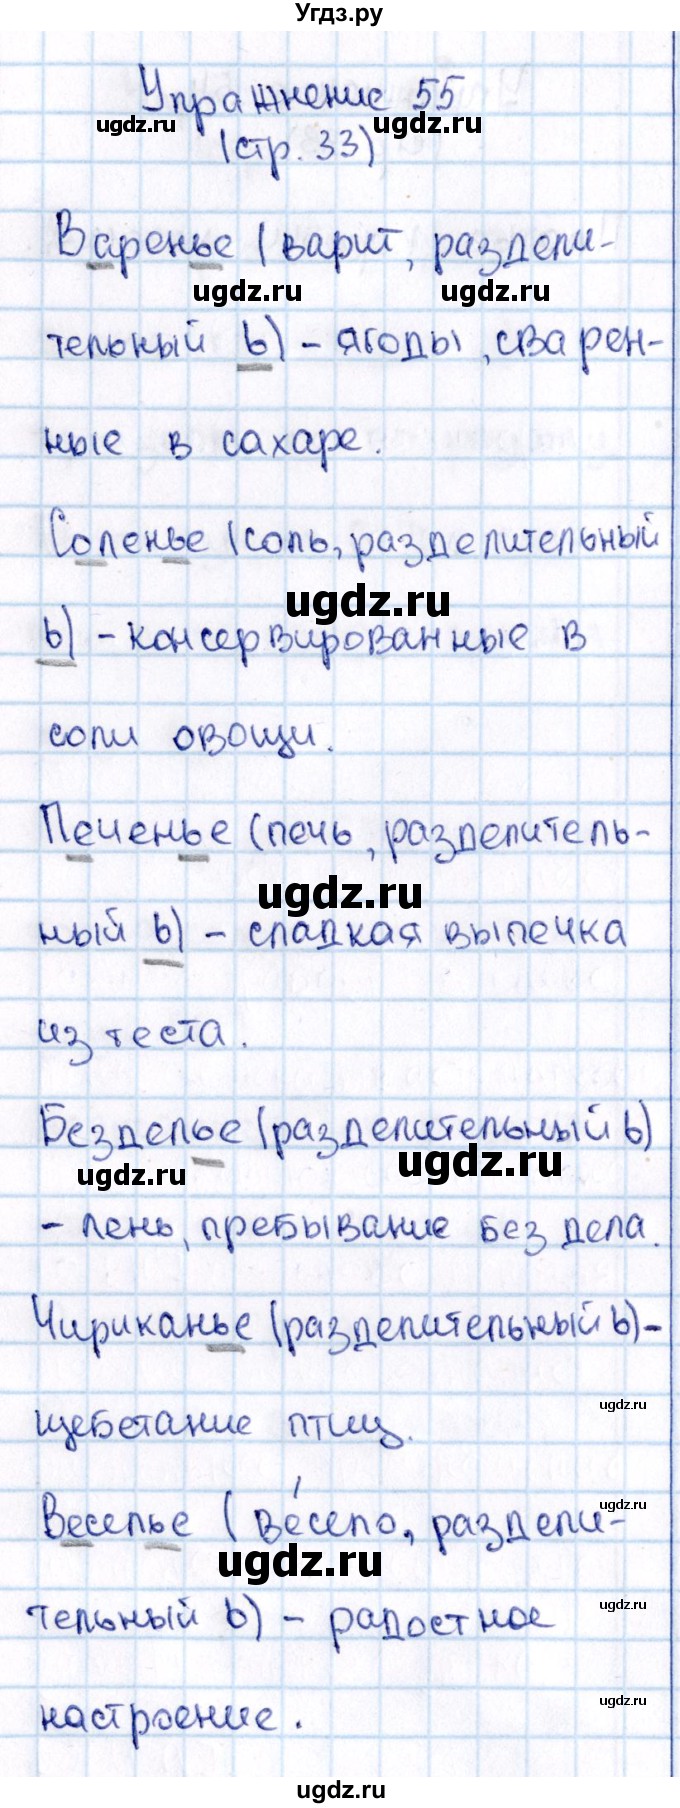 Угдз.ру
Упражнение 55
ugdz.ru ugdz.ru
(стр. 33)
Варенье (варит, раздели-
ugdz.ru ugdz.ru
тельный ь) - ягоды, сварен-
ные в сахаре.
Соленье (соль, разделительный
ugdz.ru
ь) - консервированные в
соли овощи.
Печенье (печь, разделитель-
ugdz.ru
ный ь) - сладкая выпечка
из теста.
Безделье (разделительный ь)
ugdz.ru ugdz.ru
- лень, пребывание без дела.
Чириканье (разделительный ь)-
ugdz.ru
щебетание птиц.
ugdz.ru
Веселье (ве́село, раздели-
ugdz.ru
тельный ь) - радостное
ugdz.ru
настроение.
ugdz.ru
ugdz.ru